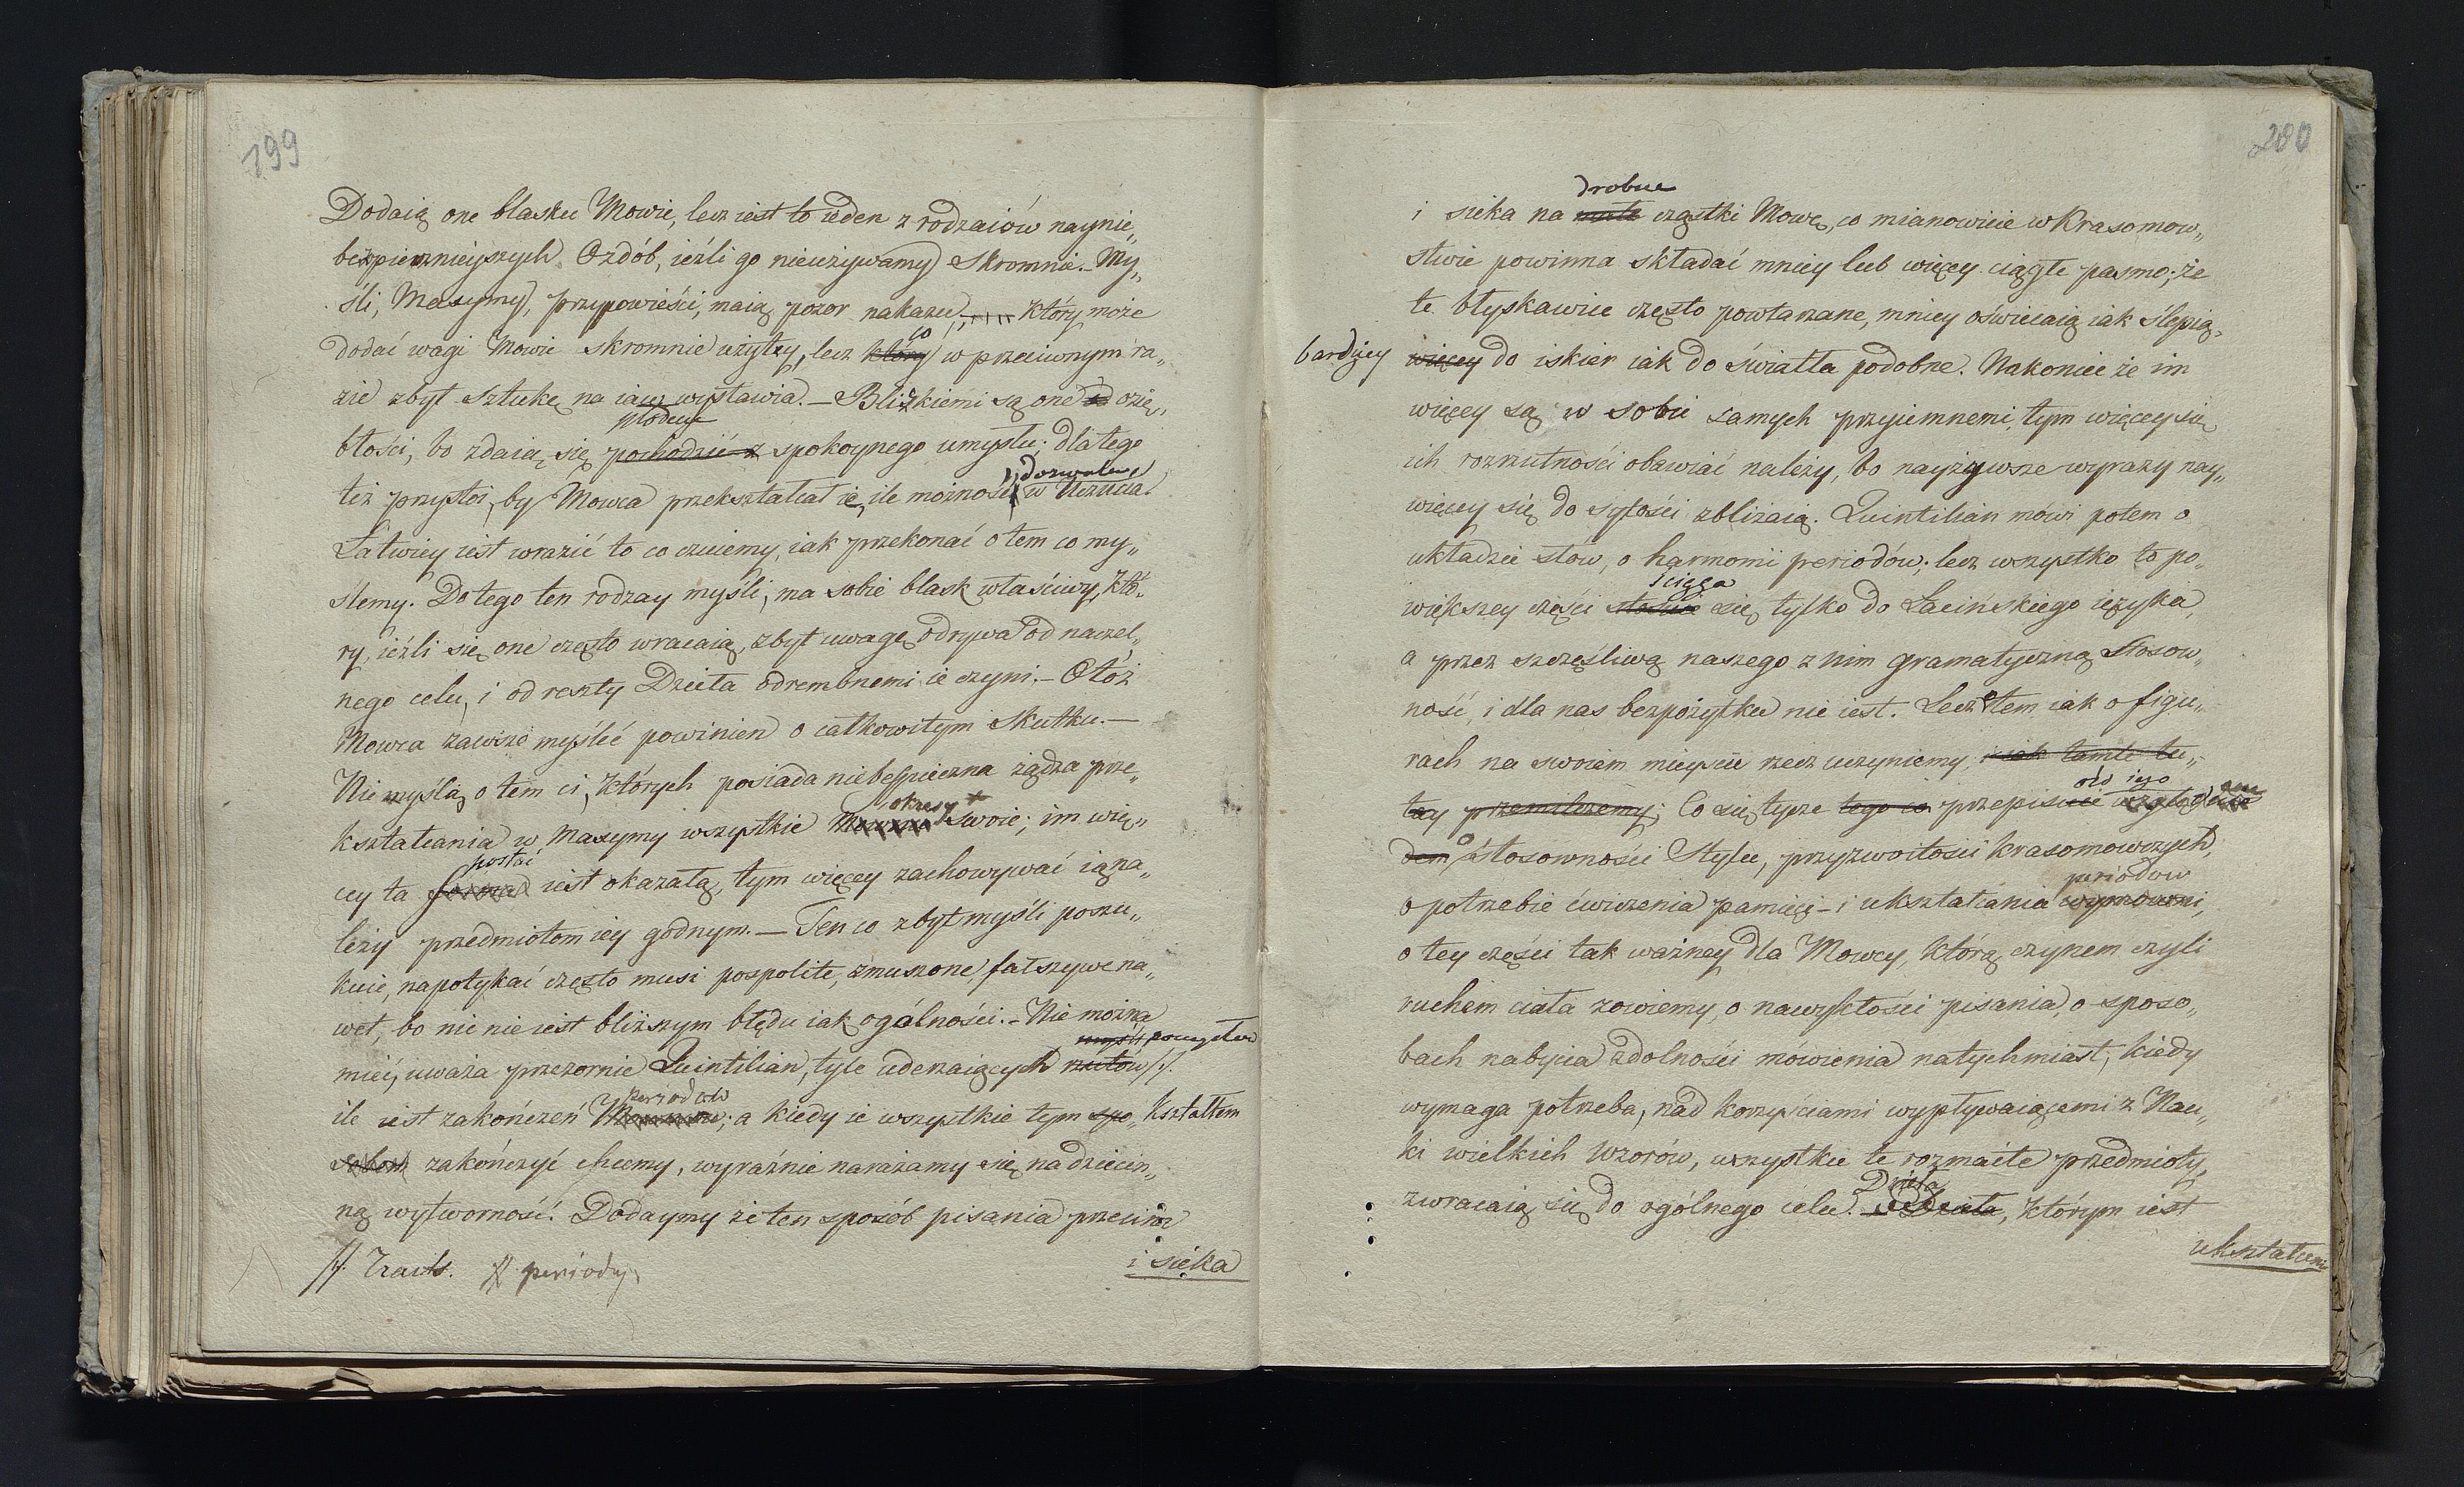 199
Dodaią one blasku Mowie, lecz iest to ieden z rodzaiów naynie„
bezpiecznieyszych Ozdób, ieźli go nieużywamy skromnie. – My„
śli, Maxymy, przypowieści, maią pozor nakazu, który może
dodać wagi Mowie skromnie użyty, lecz który co w przeciwnym ra„
zie zbyt sztukę na iaw wystawia. – Blizkiemi są one ozię„
błości, bo zdaią się pochodzić z płodem spokoynego umysłu; dla tego
też przystoi, by Mowca przekształcał ie, ile możności dozwala, w Uczucia.
Łatwiey iest wrazić to co czuiemy, iak przekonać o tem co my„
ślemy. Do tego ten rodzay myśli, ma sobie blask właściwy, któ„
ry, ieźli się one często wracaią, zbyt uwagę odrywa od naczel„
nego celu, i od reszty Dzieła odrembnemi ie czyni. – Otóż
Mowca zawsze myśleć powinien o całkowitym skutku. –
Nie myślą o tem ci, których posiada niebespieczna żądza prze„
kształcania w Maxymy wszystkie okresy swoie; im wię„
cey ta forma postać iest okazałą, tym więcey zachowywać ią na„
leży przedmiotom iey godnym. – Ten co zbyt myśli poszu„
kuie, napotykać często musi pospolite, zmuszone, fałszywe na„
wet, bo nic nie iest bliższym błędu iak ogólności. – Nie można
mieć, uważa przezornie Quintilian, tyle uderzaiących rzutów pomysłów //.
ile iest zakończeń periodów; a kiedy ie wszystkie tym spo„ kształtem
sobem zakończyć chcemy, wyraźnie narażamy się na dziecin„
ną wytworność. Dodaymy że ten sposób pisania przecina
i sieka
//. Traits. periody
280
i sieka na małe drobne cząstki Mowę, co mianowicie w Krasomow„
stwie powinna składać mniey lub więcey ciągłe pasmo; że
te błyskawice często powtarzane, mniey oświecaią iak ślepią,
bardziey więcey do iskier iak do światła podobne. Nakoniec że im
więcey są w sobie samych przyiemnemi, tym więcey się
ich rozrzutności obawiać należy, bo nayżywsze wyrazy nay„
więcey się do sytości zbliżaią. Quintilian mówi potem o
układzie słów, o harmonii periodów; lecz wszystko to po„
większey części stosuie ściąga się tylko do Łacińskiego ięzyka,
a przez szczęśliwą naszego z nim gramatyczną stosow„
ność, i dla nas bezpożytku nie iest. Lecz o tem iak o figu„
rach na swoiem mieyscu rzecz uczyniemy, i iak tamte tu„
tay przemilczemy; Co się tycze tego co przepisuie wzglę„
dem o stosowności Stylu, przyzwoitości krasomowczych,
o potrzebie ćwiczenia pamięci – i ukształcania wymowni, periodow
o tey części tak ważney dla Mowcy, którą czynem czyli
ruchem ciała zowiemy, o nawykłości pisania, o sposo„
bach nabycia zdolności mówienia natychmiast, kiedy
wymaga potrzeba, nad korzyściami wypływaiącemi z Nau„
ki wielkich wzorów, wszystkie te rozmaite przedmioty,
zwracaią się do ogólnego celu. Dzieła, którym iest
ukształcenie